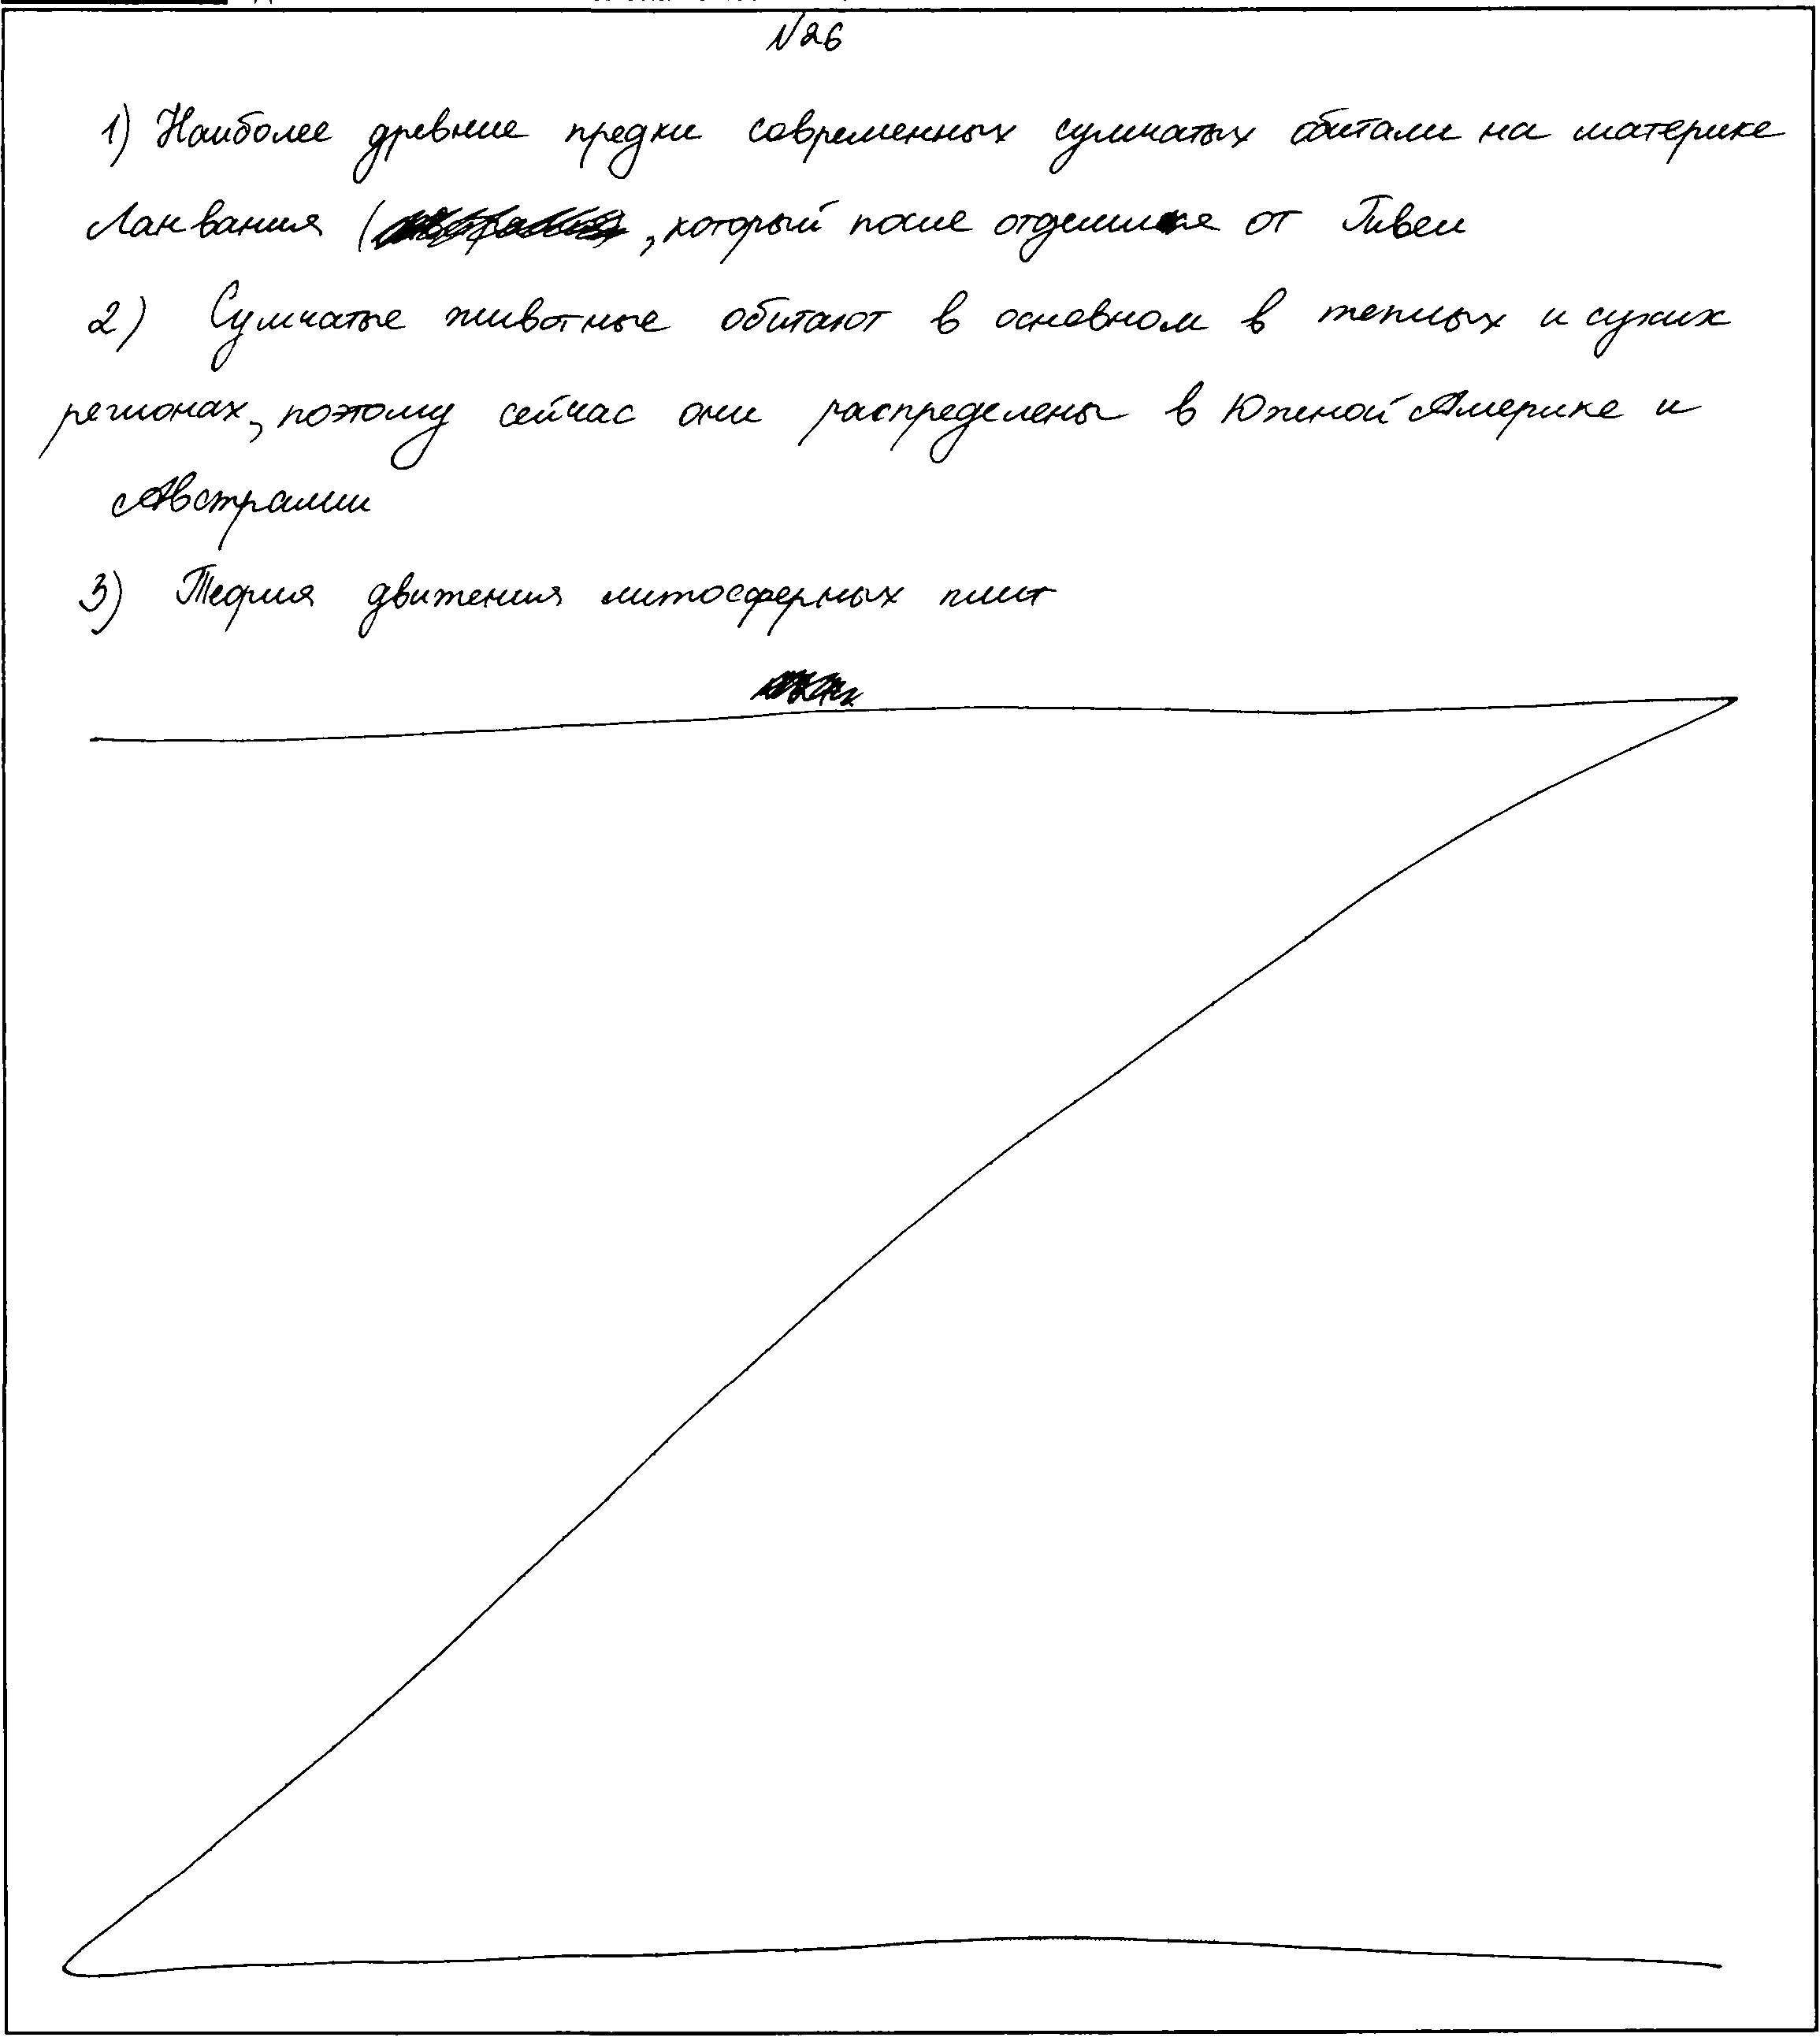 №26
1) Наиболее древние предки современных сумчатых обитали на материке
Ланвания (, который после отделился от Гивеи
2) Сумчатые животные обитают в основном в теплых и сухих
регионах, поэтому сейчас они распределены в Южной Америке и
Австралии
3) Теория движения литосферных плит